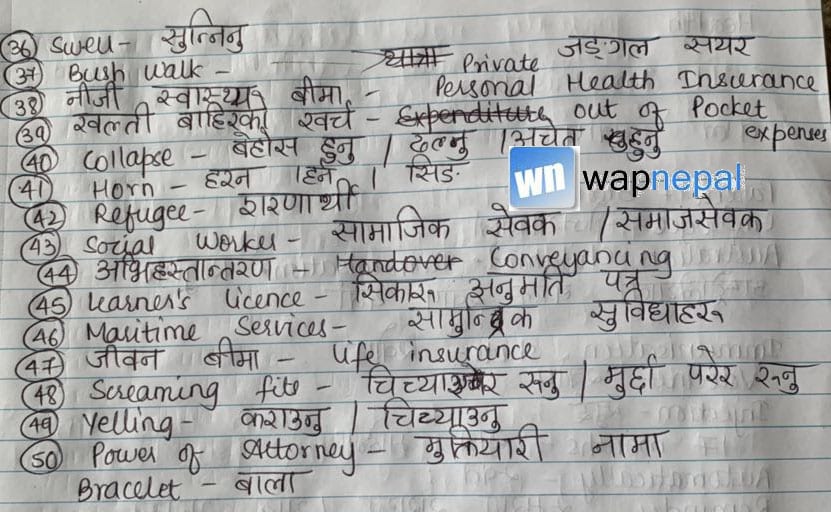 36 Swell - सुन्निनु
37 Bush Walk - जङ्गल सयर
38 नीजी स्वास्थ्य बीमा - Private Personal Health Insurance
39 खल्ती बाहिरको खर्च - Expenditure out of Pocket expenses
40 Collapse - बेहोस हुनु / ढल्नु / अचेत हुनु
41 Horn - हरन / हर्न / सिङ
wapnepal
42 Refugee - शरणार्थी
43 Social Worker - सामाजिक सेवक / समाजसेवक
44 अभिहस्तान्तरण - Handover Conveyancing
45 Learner's Licence - सिकारु अनुमति पत्र
46 Maritime Services - सामुन्द्रिक सुविधाहरु
47 जीवन बीमा - Life insurance
48 Screaming fits - चिच्याएर रुनु / मुर्छा परेर रुनु
49 Yelling - कराउनु / चिच्याउनु
50 Power of Attorney - मुक्तियारी नामा
Bracelet - बाला